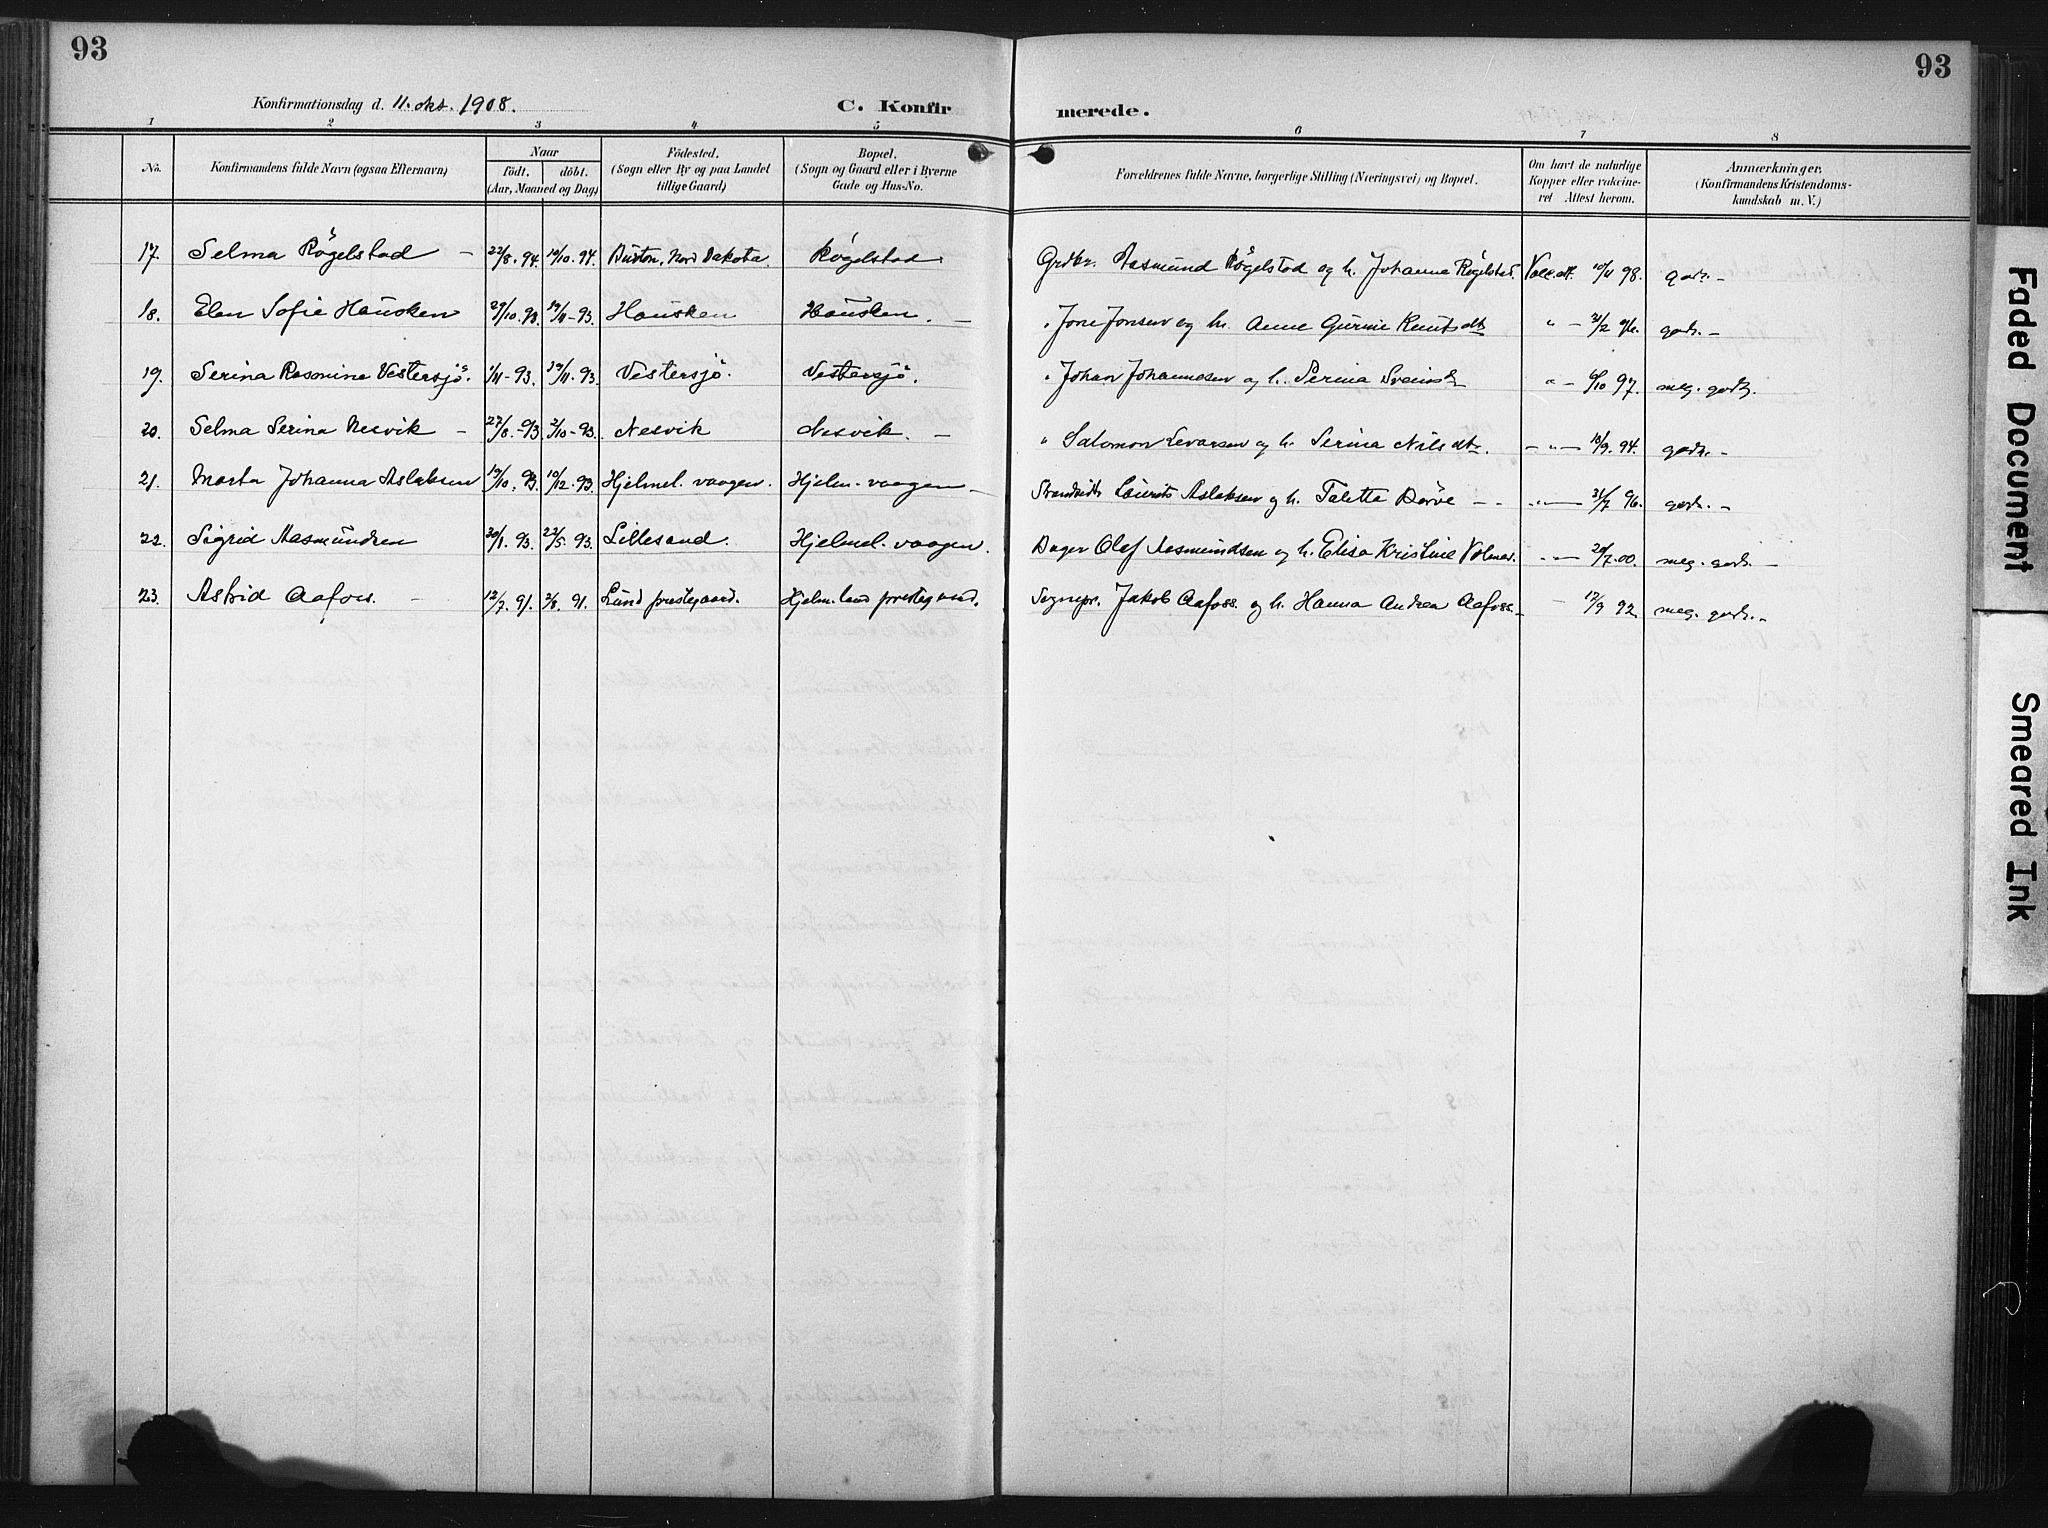 93
93
Konfirmationsdag d. 11. okt. 1908.
C. Konfirmerede.
1 2 3 4 5 6 7 8
No.
Konfirmandens fulde Navn (ogsaa Efternavn)
Naar
födt. döbt.
(Aar, Maaned og Dag)
Födested.
(Sogn eller By og paa Landet
tillige Gaard)
Bopæl.
(Sogn og Gaard eller i Byerne
Gade og Hus-No.
Forældrenes fulde Navne, borgerlige Stilling (Næringsvei) og Bopæl.
Om havt de naturlige
Kopper eller vakcine-
ret Attest herom.
Anmærkninger,
(Konfirmandens Kristendoms-
kundskab m. V.)
17. Selma Rögelstad – 22/8. 94. 10/10. 94. Buxton, Nord Dakota. Rögelstad Grdbr. Aasmund Rögelstad og h. Johanna Rögelstad. Vacc. att. 10/11 98. godt. –
18. Elen Sofie Hausken 29/10. 93. 19/11–93. Hausken Hausken. – " Jone Jonsen og h. Anne Gurine Knutsdtr " – 31/2 96. godt. –
19. Serina Rasmine Vestersjö. 1/11–93. 19/11. 93. Vestersjö. Vestersjö. " Johan Johannesen og h. Serina Svensdtr " – 6/10 97. meg. godt.
20. Selma Serina Nesvik – 27/8.–93 2/10–93. Nesvik Nesvik. – " Salomon Sevarsen og h. Serina Nilsdtr. – " – 18/9. 94. godt. –
21. Marta Johanna Aslaksen 19/10. 93. 10/12. 93. Hjelmel. vaagen. Hjelm. vaagen – Strandsidr. Laurits Aslaksen og h. Talette Børve – – " – 31/7 96. godt. –
22. Sigrid Aasmundsen 30/1. 93. 22/5. 93. Lillesand. Hjelmel. vaagen. Bager Olaf Aasmundsen og h. Elisa Kristine Volmer. " – 20/7. 00. meg. godt. –
23. Astrid Aafoss. – 12/7. 91. 2/8. 91. Lund prestegaard. Hjelmeland prestegaard. Sognepr. Jakob Aafoss og h. Hanna Andrea Aafoss – – 12/9 92. meg. godt. –
Faded Document
Smeared Ink